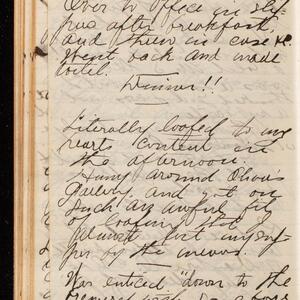 Over to office in slip
pers after breakfast,
and then in case
went back and made
toilet.
Dinner!!
Literally loafed to my
hearts content in
the afternoon.
Hung around Olivia
Gallery and got on
such an awful fit
of loafing that I
almost lost myself
for by the means.
Was enticed down to the